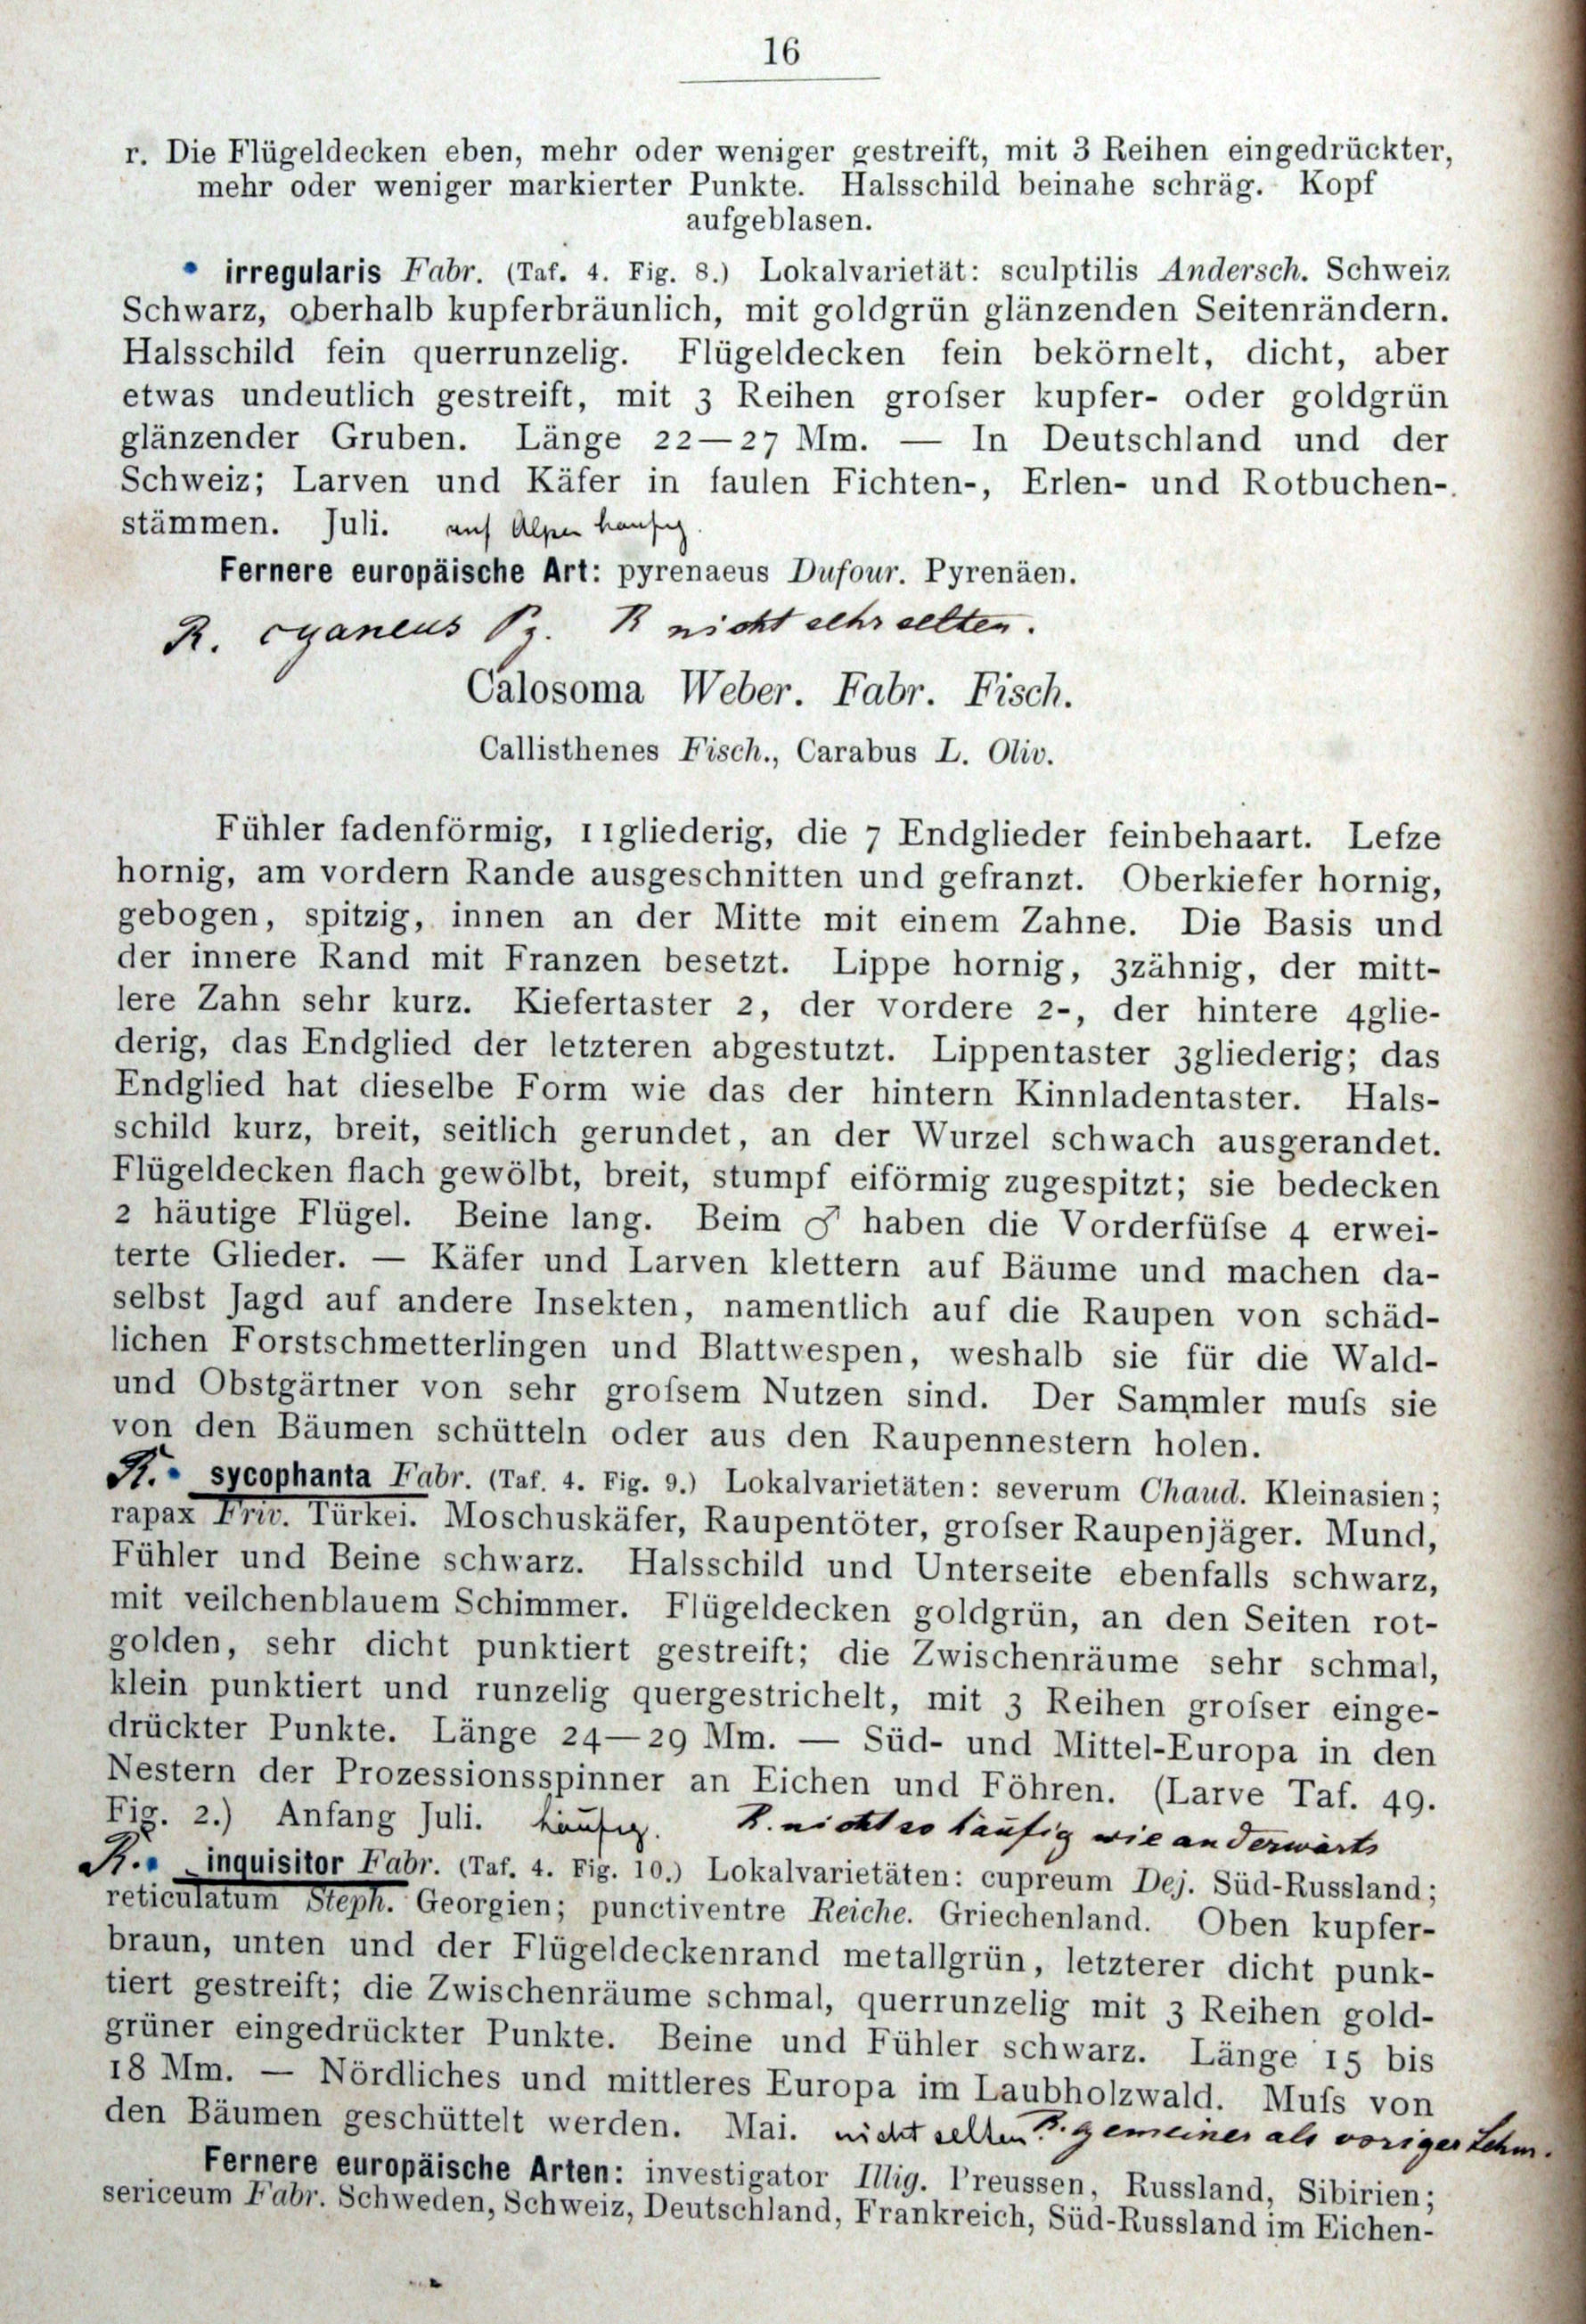 16
r. Die Flügeldecken eben, mehr oder weniger gestreift, mit 3 Reihen eingedrückter,
mehr oder weniger markierter Punkte. Halsschild beinahe schräg. Kopf
aufgeblasen.
• irregularis Fabr. (Taf. 4. Fig. 8.) Lokalvarietät: sculptilis Andersch. Schweiz
Schwarz, oberhalb kupferbräunlich, mit goldgrün glänzenden Seitenrändern.
Halsschild fein querrunzelig. Flügeldecken fein bekörnelt, dicht, aber
etwas undeutlich gestreift, mit 3 Reihen groſser kupfer- oder goldgrün
glänzender Gruben. Länge 22—27 Mm. — In Deutschland und der
Schweiz; Larven und Käfer in faulen Fichten-, Erlen- und Rotbuchen-
stämmen. Juli. auf Alpen häufig.
Fernere europäische Art: pyrenaeus Dufour. Pyrenäen.
R. cyaneus R nicht sehr selten.
Calosoma Weber. Fabr. Fisch.
Callisthenes Fisch., Carabus L. Oliv.
Fühler fadenförmig, 11gliederig, die 7 Endglieder feinbehaart. Lefze
hornig, am vordern Rande ausgeschnitten und gefranzt. Oberkiefer hornig,
gebogen, spitzig, innen an der Mitte mit einem Zahne. Die Basis und
der innere Rand mit Franzen besetzt. Lippe hornig, 3zähnig, der mitt-
lere Zahn sehr kurz. Kiefertaster 2, der vordere 2-, der hintere 4glie-
derig, das Endglied der letzteren abgestutzt. Lippentaster 3gliederig; das
Endglied hat dieselbe Form wie das der hintern Kinnladentaster. Hals-
schild kurz, breit, seitlich gerundet, an der Wurzel schwach ausgerandet.
Flügeldecken flach gewölbt, breit, stumpf eiförmig zugespitzt; sie bedecken
2 häutige Flügel. Beine lang. Beim ♂ haben die Vorderfüſse 4 erwei-
terte Glieder. — Käfer und Larven klettern auf Bäume und machen da-
selbst Jagd auf andere Insekten, namentlich auf die Raupen von schäd-
lichen Forstschmetterlingen und Blattwespen, weshalb sie für die Wald-
und Obstgärtner von sehr groſsem Nutzen sind. Der Sammler muſs sie
von den Bäumen schütteln oder aus den Raupennestern holen.
R. • sycophanta Fabr. (Taf. 4. Fig. 9.) Lokalvarietäten: severum Chaud. Kleinasien;
rapax Friv. Türkei. Moschuskäfer, Raupentöter, groſser Raupenjäger. Mund,
Fühler und Beine schwarz. Halsschild und Unterseite ebenfalls schwarz,
mit veilchenblauem Schimmer. Flügeldecken goldgrün, an den Seiten rot-
golden, sehr dicht punktiert gestreift; die Zwischenräume sehr schmal,
klein punktiert und runzelig quergestrichelt, mit 3 Reihen groſser einge-
drückter Punkte. Länge 24—29 Mm. — Süd- und Mittel-Europa in den
Nestern der Prozessionsspinner an Eichen und Föhren. (Larve Taf. 49.
Fig. 2.) Anfang Juli. häufig. R. nicht so häufig wie anderwärts
R. • inquisitor Fabr. (Taf. 4. Fig. 10.) Lokalvarietäten: cupreum Dej. Süd-Russland;
reticulatum Steph. Georgien; punctiventre Reiche. Griechenland. Oben kupfer-
braun, unten und der Flügeldeckenrand metallgrün, letzterer dicht punk-
tiert gestreift; die Zwischenräume schmal, querrunzelig mit 3 Reihen gold-
grüner eingedrückter Punkte. Beine und Fühler schwarz. Länge 15 bis
18 Mm. — Nördliches und mittleres Europa im Laubholzwald. Muſs von
den Bäumen geschüttelt werden. Mai. nicht selten R. gemeiner als voriger
Fernere europäische Arten: investigator Illig. Preussen, Russland, Sibirien;
sericeum Fabr. Schweden, Schweiz, Deutschland, Frankreich, Süd-Russland im Eichen-